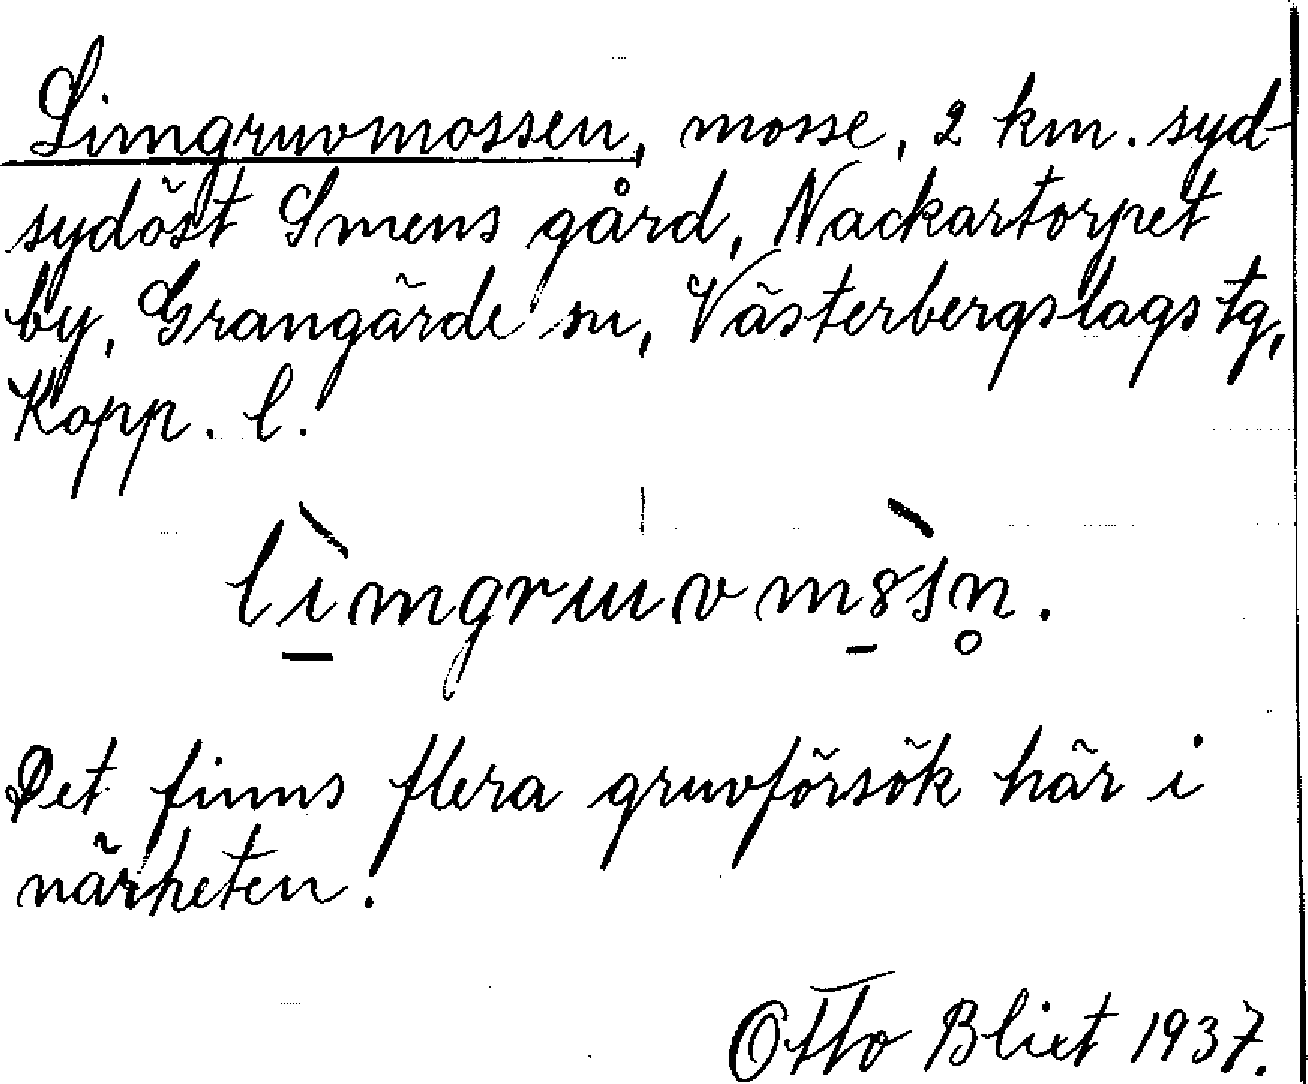 Limgruvmossen, mosse, 2 km. syd-
sydöst Smens gård, Nackartorpet
by, Grangärde sn, Västerbergslags tg,
Kopp. l.
lìmgruuvm8̀sn̥.
Det finns flera gruvförsök här i
närheten.
Otto Blixt 1937.